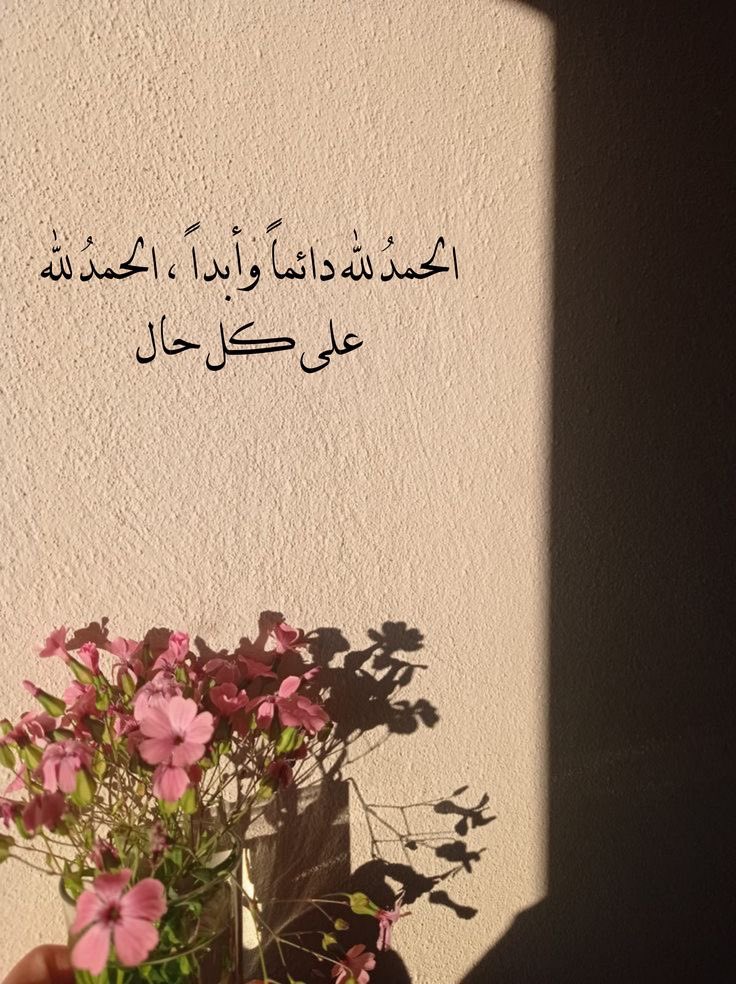 الحمدُ لله دائماً وأبداً ، الحمدُ لله
على كل حال